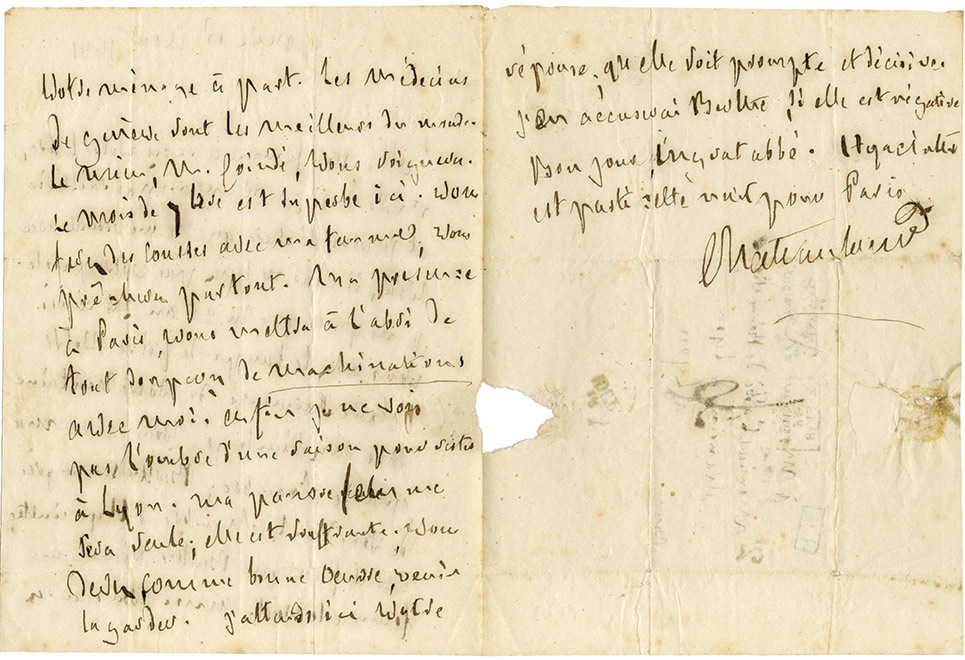 Votre ménage à part. Les médecins
de Genève sont les meilleurs du monde.
Le mien, M. Coindé, vous soignera.
Le mois de 7bre est superbe ici. Vous
ferez des courses avec ma femme, vous
prêcherez partout. Ma présence
à Paris, vous mettra à l'abri de
tout soupçon de machinations
avec moi. enfin je ne vois
pas l'ombre d'une raison pour rester
à Lyon. ma pauvre femme
sera seule; elle est souffrante. vous
devez comme bonne venir
la garder. j'attends ici votre
réponse, qu'elle soit prompte et décisive.
j'en accuserai si elle est négative
Bon jour, ingrat abbé. Hyacinthe
est parti cette nuit pour Paris
Chateaubriand